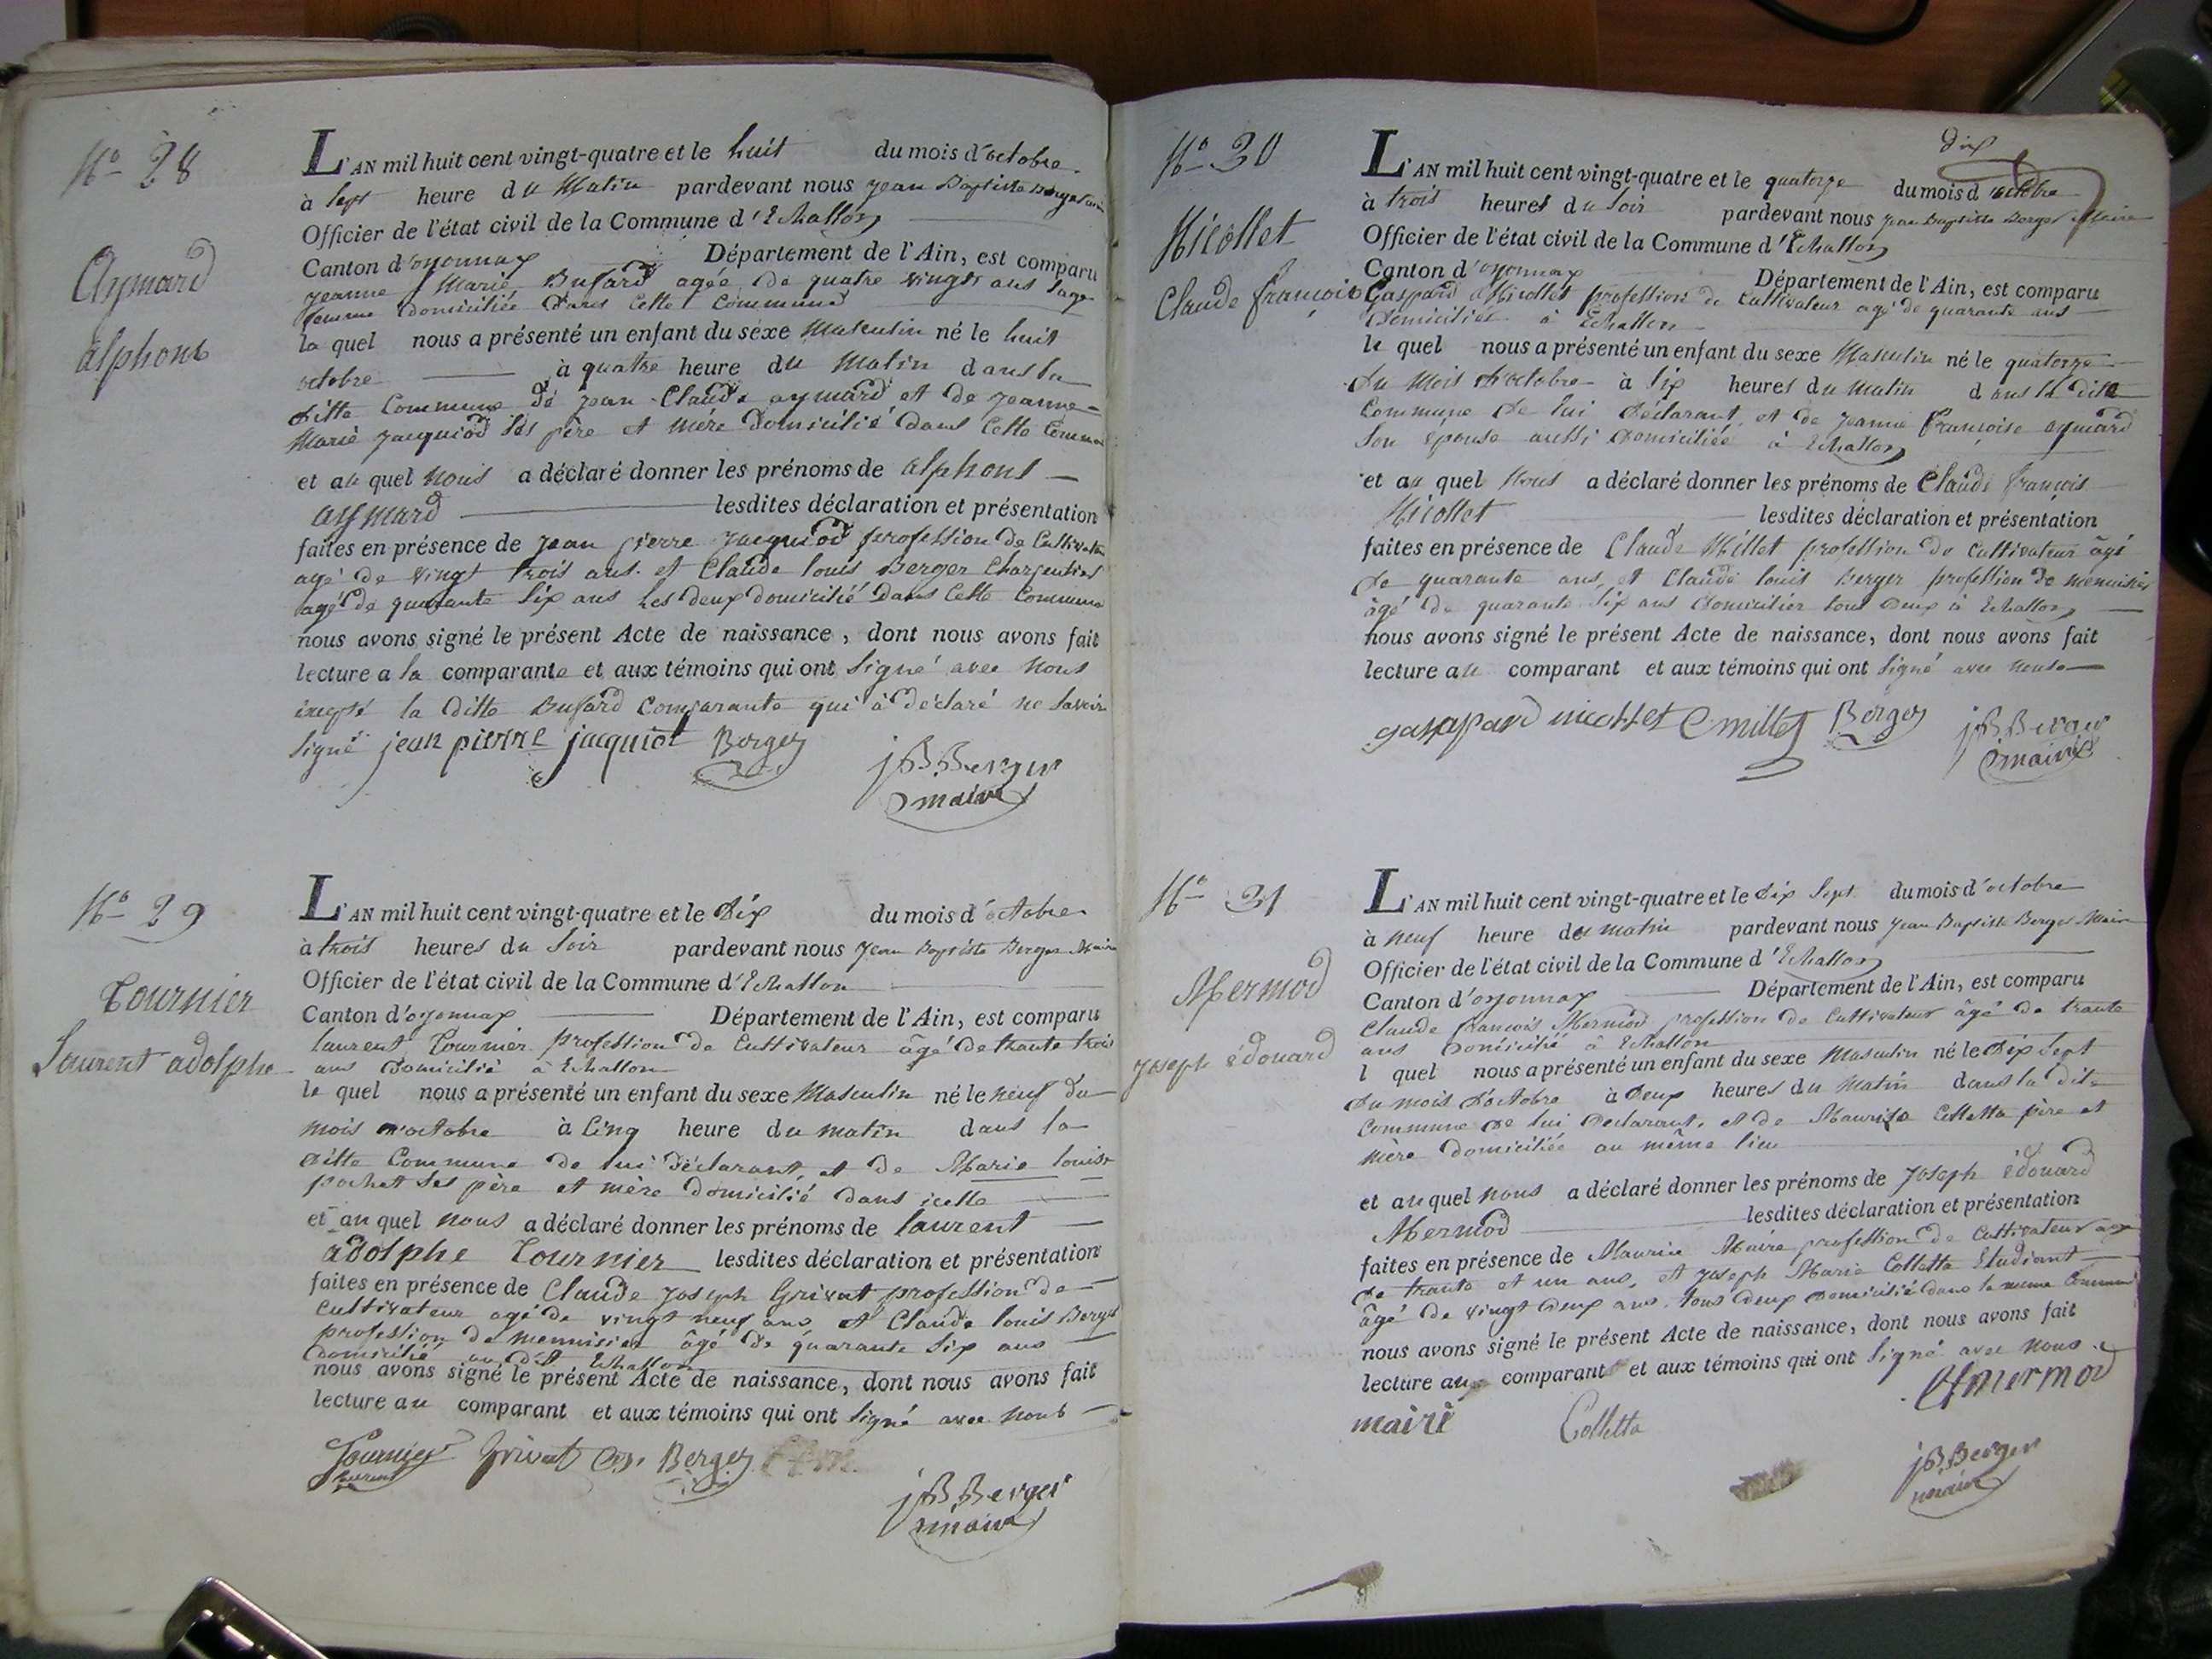 N° 28
Aymard
alphons
L'AN mil huit cent vingt-quatre et le huit du mois d'octobre
à sept heure du Matin pardevant nous jean Baptiste Berger Maire
Officier de l'état civil de la Commune d'Echallon
Canton d'oyonnax Département de l'Ain, est comparu
jeanne Marie Bufard agée de quatre vingts ans sage
femme domiciliée dans cette Commune
la quel nous a présenté un enfant du sexe Masculin né le huit
octobre à quatre heure du Matin dans la
ditte Commune de jean Claude aymard et de jeanne
Marie jacquiod ses père et mère domicilié dans cette Commune
et au quel nous a déclaré donner les prénoms de alphons
aymard lesdites déclaration et présentation
faites en présence de jean pierre jacquiod profession de Cultivateur
agé de vingt trois ans et Claude louis Berger Charpentier
agé de quarante six ans les deux domicilié dans cette Commune
nous avons signé le présent Acte de naissance, dont nous avons fait
lecture a la comparante et aux témoins qui ont signé avec nous
excepté la ditte Bufard Comparante qui à déclaré ne savoir
signé jean pierre jacquiot Berger
jB Berger
maire
N° 29
Tournier
Laurent adolphe
L'AN mil huit cent vingt-quatre et le dix du mois d'octobre
à trois heures du soir pardevant nous jean Baptiste Berger Maire
Officier de l'état civil de la Commune d'Echallon
Canton d'oyonnax Département de l'Ain, est comparu
laurent Tournier profession de Cultivateur âgé de trante trois
ans domicilié à Echallon
le quel nous a présenté un enfant du sexe Masculin né le neuf du
mois d'octobre à Cinq heure du matin dans la
ditte Commune de lui déclarant et de Marie louise
pochet ses père et mère domicilié dans icelle
et au quel nous a déclaré donner les prénoms de laurent
adolphe Tournier lesdites déclaration et présentation
faites en présence de Claude joseph Grivat profession de
cultivateur agé de vingt neuf ans et Claude louis Berger
profession de menuisier âgé de quarante six ans
domicilié au dit Echallon
nous avons signé le présent Acte de naissance, dont nous avons fait
lecture au comparant et aux témoins qui ont signé avec nous
Tournier Grivat Berger
laurent
jB Berger
maire
dix
N° 30
Nicollet
Claude françois
L'AN mil huit cent vingt-quatre et le quatorze du mois d'octobre
à trois heures du soir pardevant nous jean Baptiste Berger Maire
Officier de l'état civil de la Commune d'Echallon
Canton d'oyonnax Département de l'Ain, est comparu
Gaspard Nicollet profession de Cultivateur agé de quarante ans
domicilier à Echallon
le quel nous a présenté un enfant du sexe Masculin né le quatorze
du mois d'octobre à six heures du matin dans la dite
Commune de lui déclarant et de jeanne françoise aymard
son épouse aussi domiciliée à Echallon
et au quel nous a déclaré donner les prénoms de Claude françois
Nicollet lesdites déclaration et présentation
faites en présence de Claude Millet profession de cultivateur âgé
de quarante ans et Claude louis Berger profession de menuisier
âgé de quarante six ans domicilier tous deux à Echallon
nous avons signé le présent Acte de naissance, dont nous avons fait
lecture au comparant et aux témoins qui ont signé avec nous
gaspard nicollet Cmillet Berger
jB Berger
maire
N° 31
Mermod
joseph édouard
L'AN mil huit cent vingt-quatre et le dix sept du mois d'octobre
à neuf heure du matin pardevant nous jean Baptiste Berger Maire
Officier de l'état civil de la Commune d'Echallon
Canton d'oyonnax Département de l'Ain, est comparu
Claude françois Mermod profession de Cultivateur âgé de trante
ans domicilié à Echallon
l quel nous a présenté un enfant du sexe Masculin né le dix sept
du mois d'octobre à deux heures du matin dans la dite
Commune de lui declarant, et de Maurise Colletta père et
mère domiciliée au même lieu
et au quel nous a déclaré donner les prénoms de joseph édouard
Mermod lesdites déclaration et présentation
faites en présence de Maurice Maire profession de Cultivateur age
de trante et un ans, et joseph Marie Colletta Etudiant
âgé de vingt deux ans tous deux domicilié dans la meme Commune
nous avons signé le présent Acte de naissance, dont nous avons fait
lecture au comparant et aux témoins qui ont signé avec nous
Cfmermod
maire Colletta
jB Berger
maire